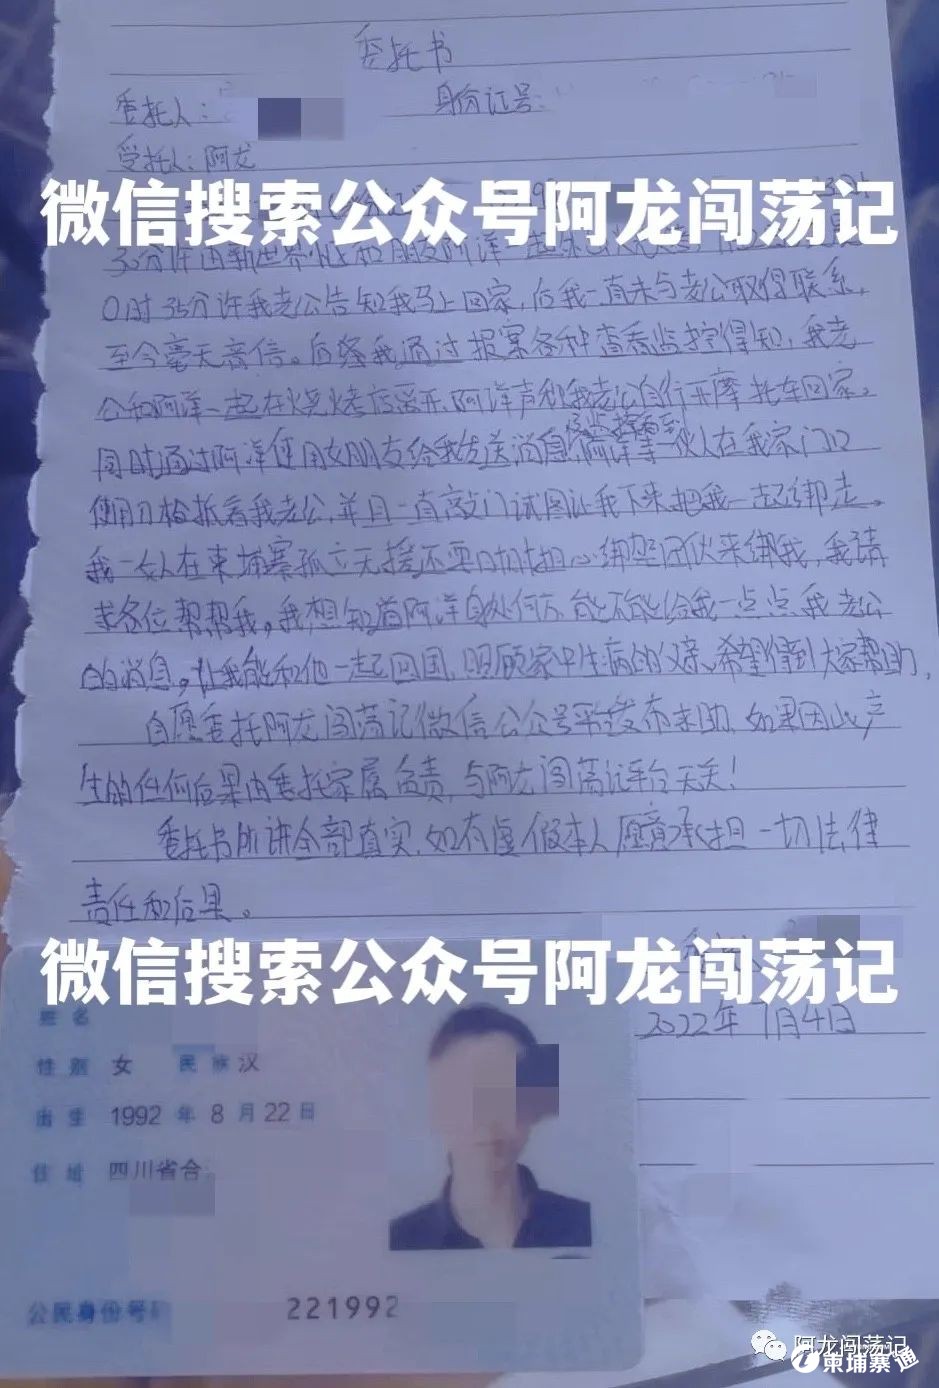 委托书
委托人：
身份证号：
受托人：阿龙
微信搜索公众号阿龙闯荡记
30分许因新世界
0时35分许我老公告知我马上回家，后我一直未与老公取得联系，
至今毫无音信。后经我通过报案各种查看监控得知，我老
公和阿洋一起在烧烤店离开，阿洋声称我老公自行开摩托车回家。
同时通过阿洋使用女朋友给我发送消息，阿洋等一伙人在我家门口
使用刀枪抵着我老公，并且一直敲门试图让我下来把我一起绑走。
我一女人在柬埔寨孤立无援还要时时担心绑架团伙来绑我，我请
求各位帮帮我。我想知道阿洋身处何方，能不能给我一点点我老公
的消息。让我能和他一起回国，照顾家中生病的父亲。希望得到大家帮助，
自愿委托阿龙闯荡记微信公众号来发布求助，如果因此产
生的任何后果由委托家属负责，与阿龙闯荡记平台无关！
委托书所讲全部真实，如有虚假本人愿意承担一切法律
责任和后果。
微信搜索公众号阿龙闯荡记
2022年7月4日
姓名
性别 女 民族 汉
出生 1992 年 8 月 22 日
住址 四川省合
公民身份号
221992
阿龙闯荡记
柬埔寨通